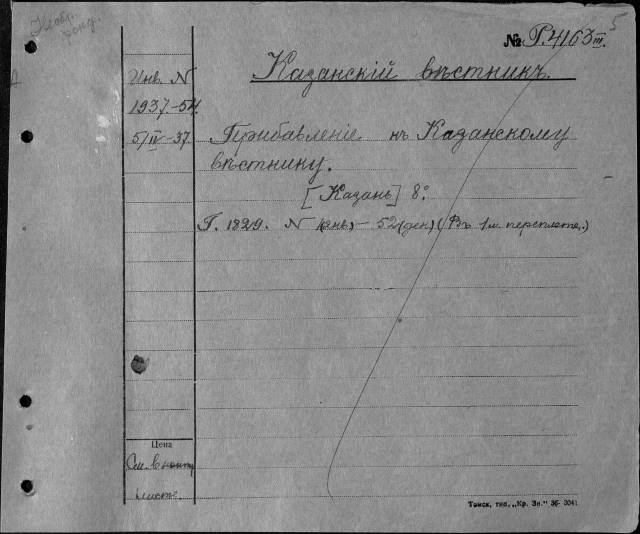 5
№ Р.4163 III.
Казанскій вѣстникъ.
Инв. N
1937-54.
5/IV-37
Прибавленіе къ Казанскому
вѣстнику.
[Казань] 8º.
Г. 1829. N 1(янв) - 52(дек) (Въ 1 м. переплете.)
Цена
См. в
листе.
Томск, тип. „Кр. Зн." 36- 3041